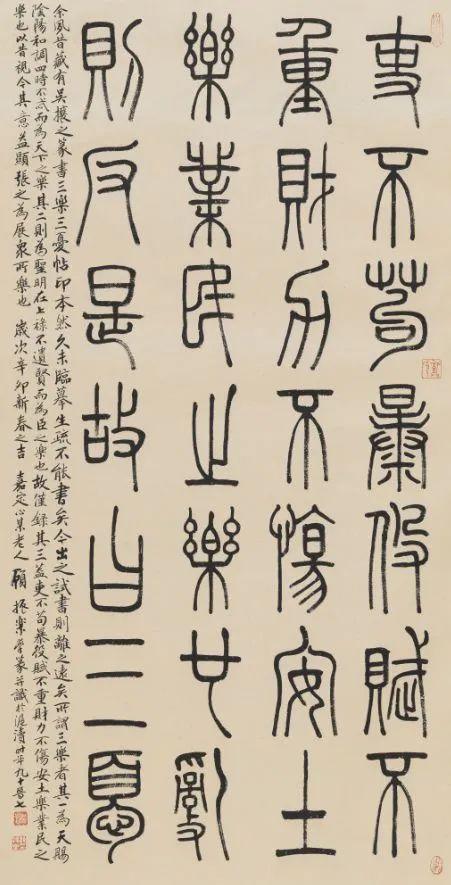 吏不苟暴役賦不
重財力不傷安土
樂業民之樂也亂
則反是故曰三憂
余夙昔藏有吳攘之篆書三樂三憂帖印本然久未臨摹生疏不能書矣今出之試書則離之遠矣所謂三樂者其一為天賜
陰陽和調四時不忒而為天下之樂其二則為聖明在上祿不遺賢而為臣之樂也故僅錄其三蓋吏不苟暴役賦不重財力不傷安土樂業民之
樂也以昔視今其意益顯張之為展眾所樂也 歲次辛卯新春之吉 嘉定心某老人顧振樂學篆并識於滬瀆時年九十晉七